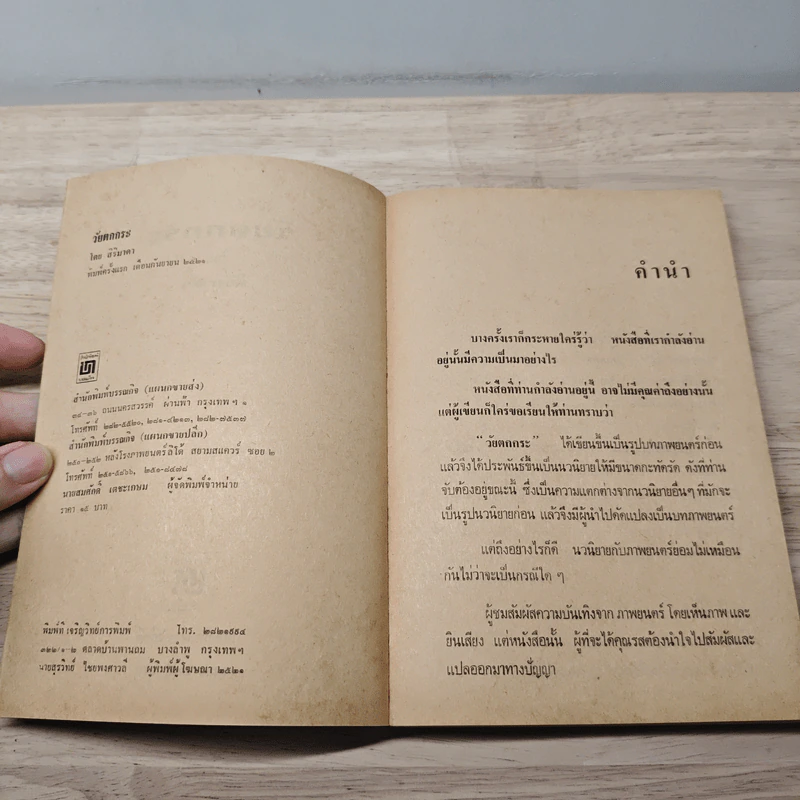 วัยตกกระ
โดย สิริมาดา
พิมพ์ครั้งแรก เดือนกันยายน ๒๕๒๑
สำนักพิมพ์บรรณกิจ (แผนกขายส่ง)
๓๔-๓๖ ถนนนครสวรรค์ ผ่านฟ้า กรุงเทพ ฯ ๑
โทรศัพท์ ๒๘๒-๕๕๒๐, ๒๘๑-๔๒๑๓, ๒๘๒-๗๕๓๗
สำนักพิมพ์บรรณกิจ (แผนกขายปลีก)
๒๕๑-๒๕๒ หลังโรงภาพยนตร์ลิโด้ สยามสแควร์ ซอย ๒
โทรศัพท์ ๒๕๑-๕๘๖๖, ๒๕๑-๘๔๗๘
นายสมศักดิ์ เตชะเกษม ผู้จัดพิมพ์จำหน่าย
ราคา ๑๕ บาท
พิมพ์ที่ เจริญวิทย์การพิมพ์ โทร. ๒๘๒๑๙๙๔
๓๒๒/๑-๒ ตลาดบ้านพานถม บางลำพู กรุงเทพ ฯ
นายสุรวิทย์ ไชยพงศาวลี ผู้พิมพ์ผู้โฆษณา ๒๕๒๑
คำนำ
บางครั้งเราก็กระหายใคร่รู้ว่า หนังสือที่เรากำลังอ่าน
อยู่นั้นมีความเป็นมาอย่างไร
หนังสือที่ท่านกำลังอ่านอยู่นี้ อาจไม่มีคุณค่าถึงอย่างนั้น
แต่ผู้เขียนก็ใคร่ขอเรียนให้ท่านทราบว่า
"วัยตกกระ" ได้เขียนขึ้นเป็นรูปบทภาพยนตร์ก่อน
แล้วจึงได้ประพันธ์ขึ้นเป็นนวนิยายให้มีขนาดกะทัดรัด ดังที่ท่าน
จับต้องอยู่ขณะนี้ ซึ่งเป็นความแตกต่างจากนวนิยายอื่นๆ ที่มักจะ
เป็นรูปนวนิยายก่อน แล้วจึงมีผู้นำไปดัดแปลงเป็นบทภาพยนตร์
แต่ถึงอย่างไรก็ดี นวนิยายกับภาพยนตร์ย่อมไม่เหมือน
กันไม่ว่าจะเป็นกรณีใด ๆ
ผู้ชมสัมผัสความบันเทิงจาก ภาพยนตร์ โดยเห็นภาพ และ
ยินเสียง แต่หนังสือนั้น ผู้ที่จะได้คุณรสต้องนำใจไปสัมผัสและ
แปลออกมาทางปัญญา